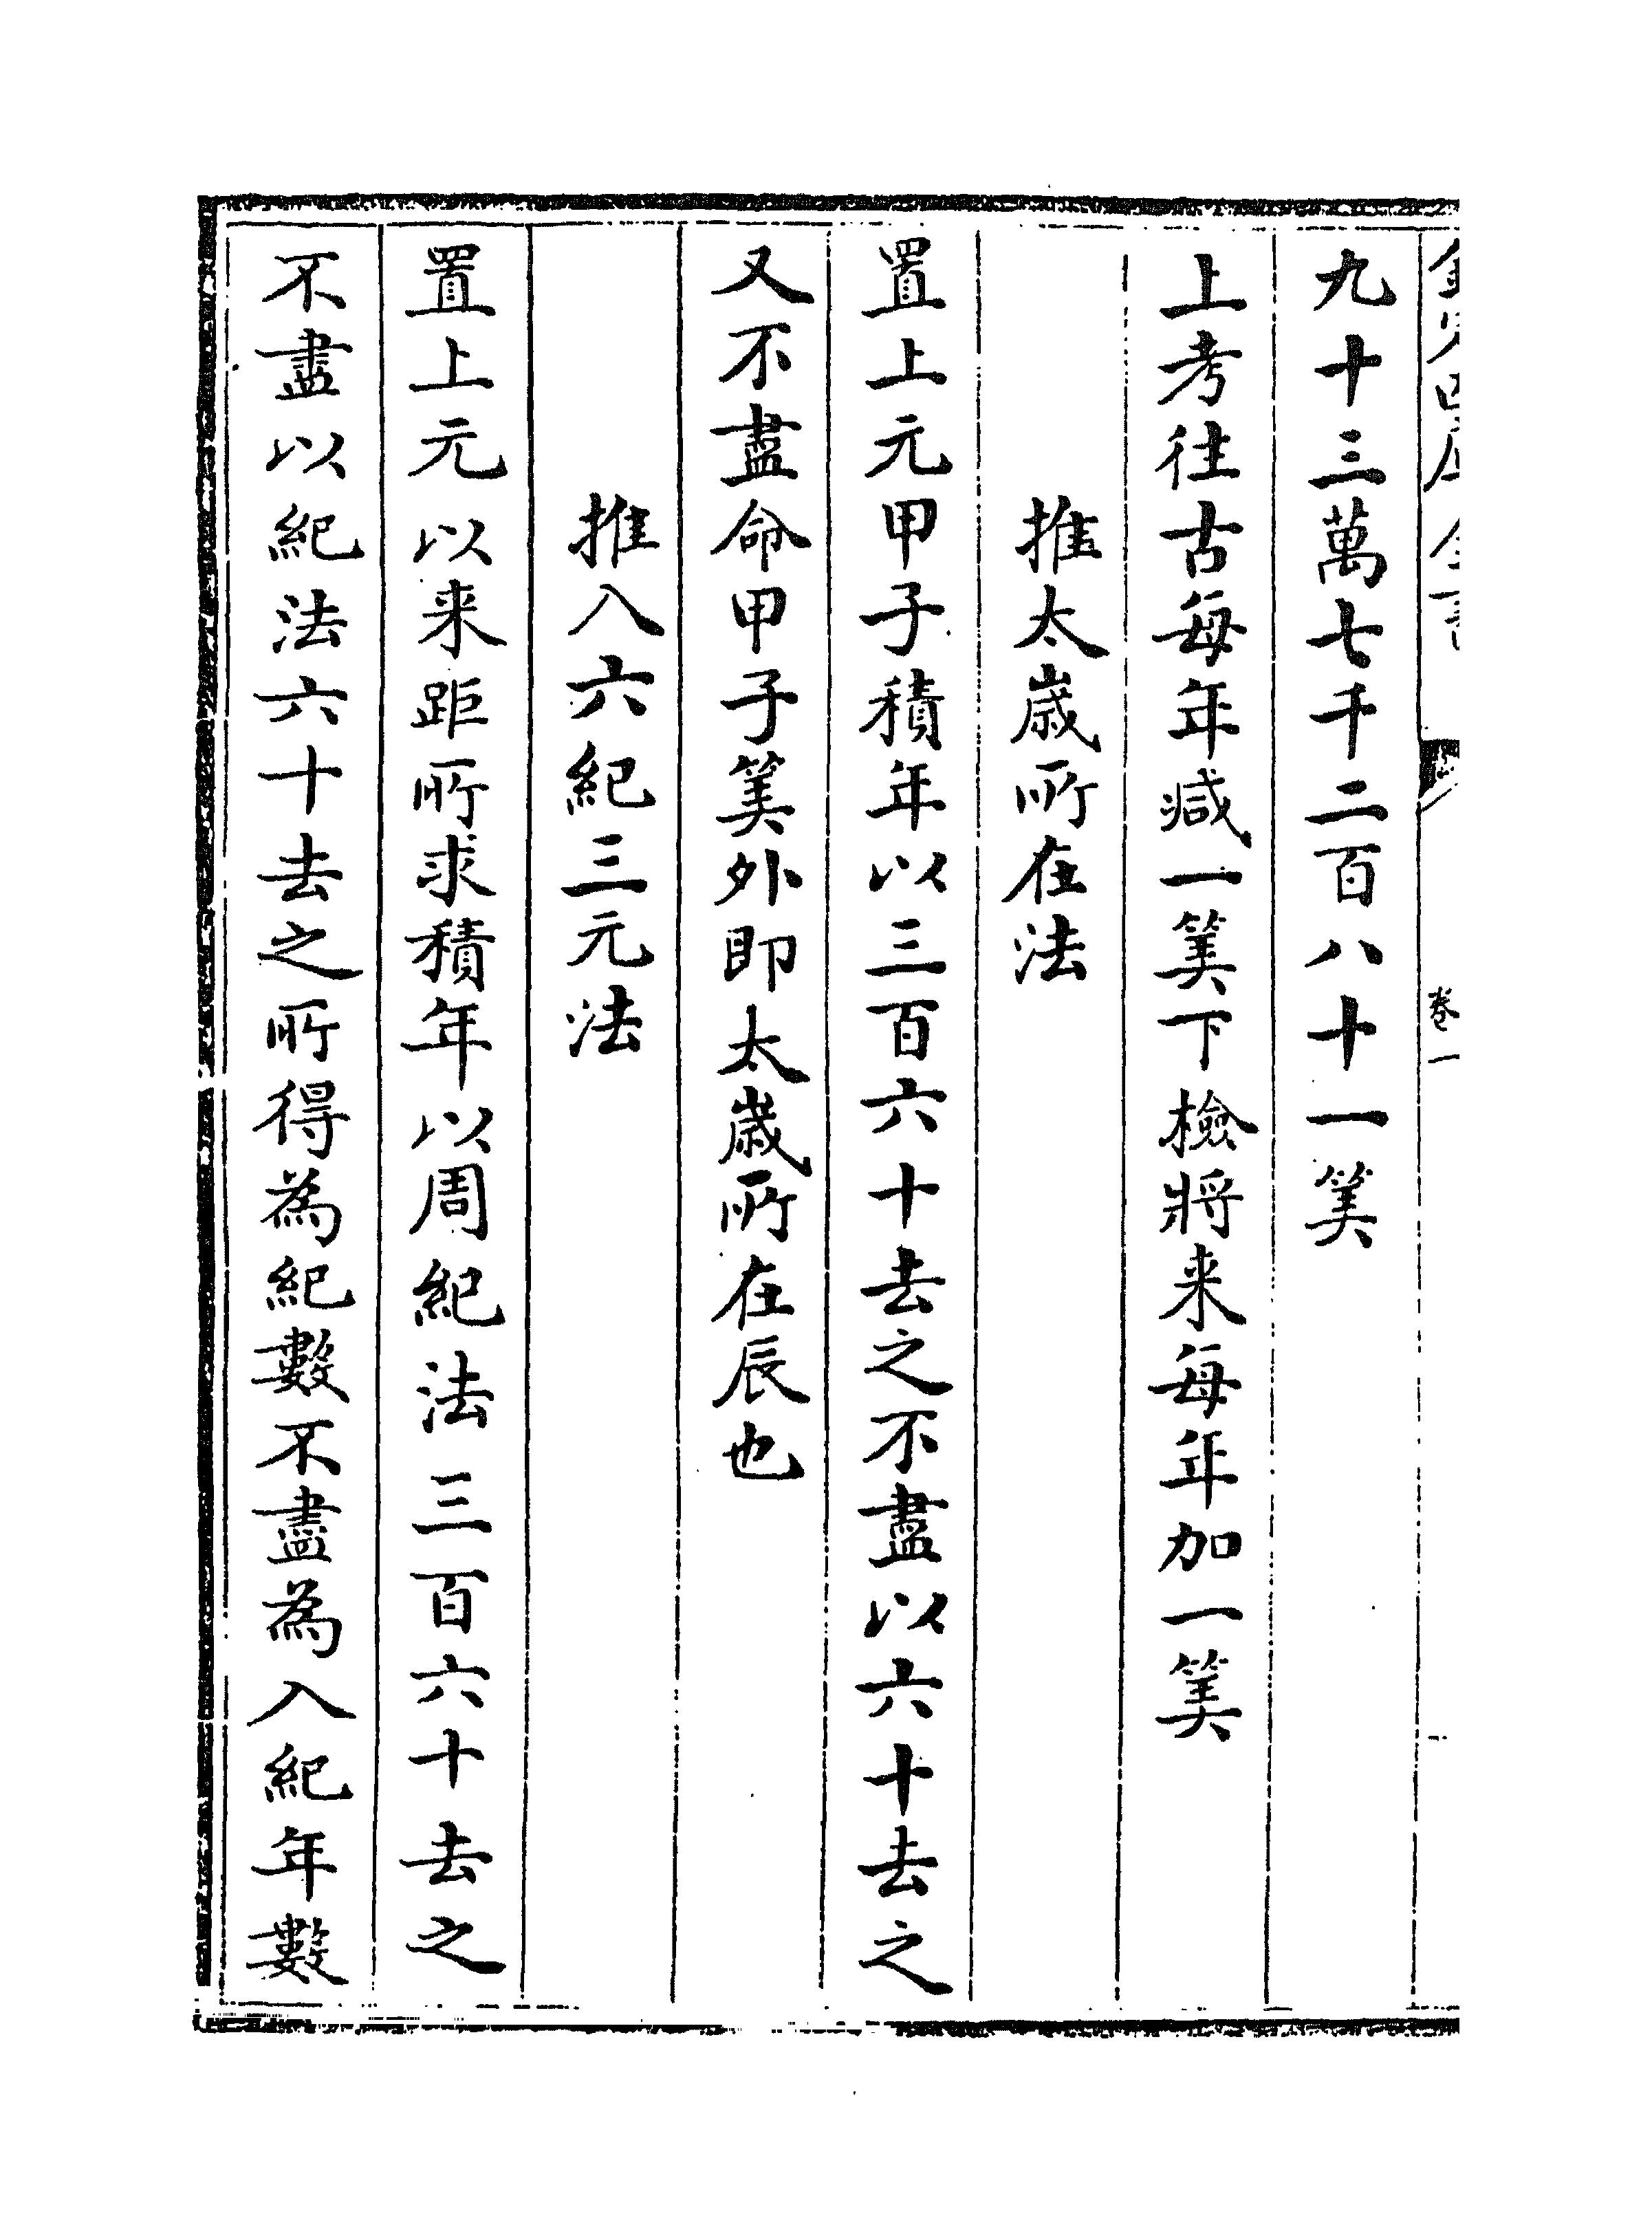 九十三萬七千二百八十一筭
上考往古每年減一筭下檢將来每年加一筭
推太歲所在法
置上元甲子積年以三百六十去之不盡以六十去之
又不盡命甲子筭外即太歲所在辰也
推入六紀三元法
置上元以来距所求積年以周紀法三百六十去之
不盡以紀法六十去之所得為紀數不盡為入紀年數
卷一